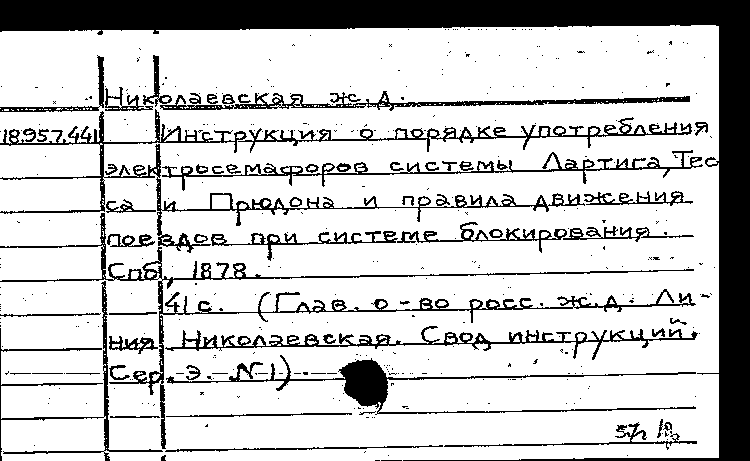 Николаевская ж.д.
18.957.441 Инструкция о порядке употребления
электросемафоров системы Лартига, Тес
са и Прюдона и правила движения
поездов при системе блокирования.
Спб., 1878.
41 с. (Глав. о-во росс. ж.д. Ли-
ния Николаевская. Свод инструкций.
Сер. Э. №1).